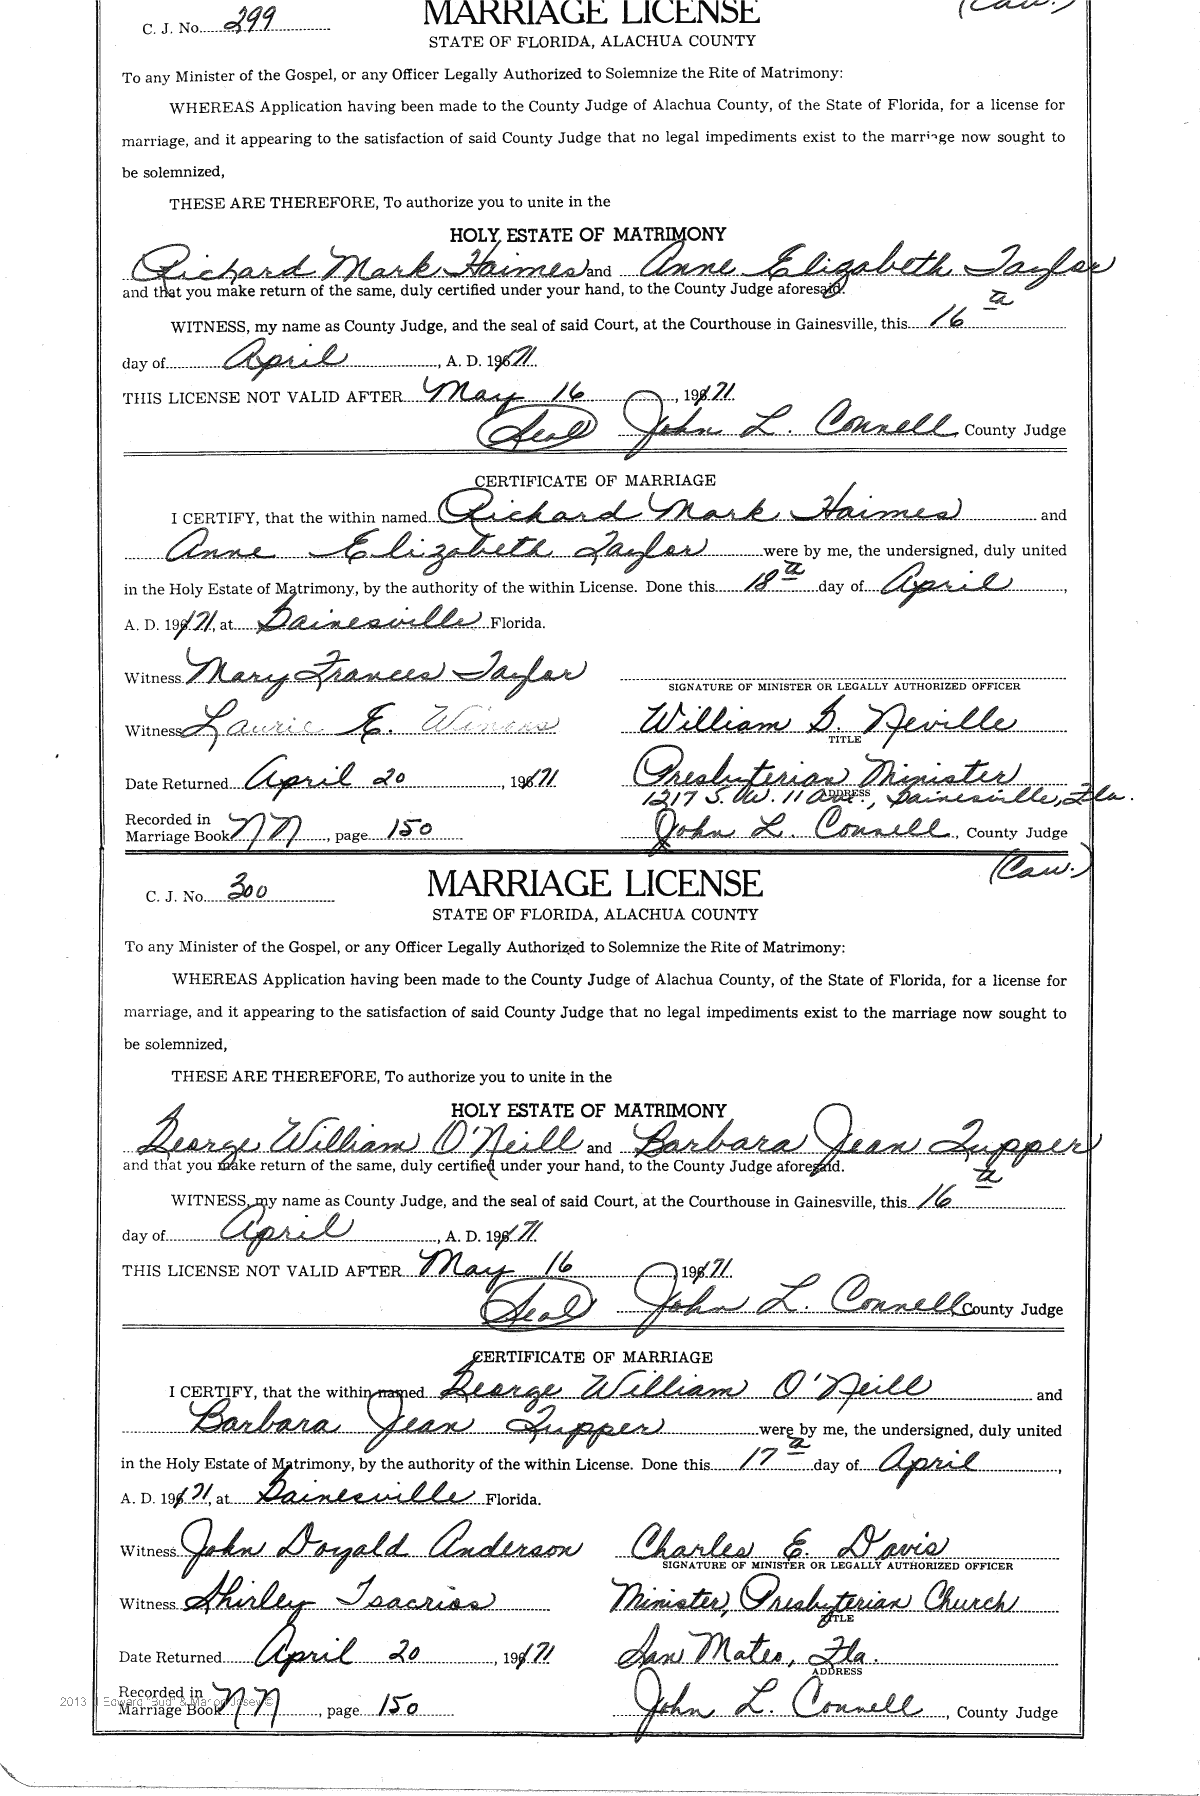 (Caw.)
C. J. No. 299
MARRIAGE LICENSE
STATE OF FLORIDA, ALACHUA COUNTY
To any Minister of the Gospel, or any Officer Legally Authorized to Solemnize the Rite of Matrimony:
WHEREAS Application having been made to the County Judge of Alachua County, of the State of Florida, for a license for
marriage, and it appearing to the satisfaction of said County Judge that no legal impediments exist to the marriage now sought to
be solemnized,
THESE ARE THEREFORE, To authorize you to unite in the
HOLY ESTATE OF MATRIMONY
Richard Mark Haimes and Anne Elizabeth Taylor
and that you make return of the same, duly certified under your hand, to the County Judge aforesaid.
WITNESS, my name as County Judge, and the seal of said Court, at the Courthouse in Gainesville, this 16th
day of April, A. D. 1971.
THIS LICENSE NOT VALID AFTER May 16, 1971.
(Seal) John L. Connell, County Judge
CERTIFICATE OF MARRIAGE
I CERTIFY, that the within named Richard Mark Haimes and
Anne Elizabeth Taylor were by me, the undersigned, duly united
in the Holy Estate of Matrimony, by the authority of the within License. Done this 18th day of April,
A. D. 1971, at Gainesville Florida.
Witness Mary Frances Taylor
SIGNATURE OF MINISTER OR LEGALLY AUTHORIZED OFFICER
Witness Laurie E. William G. Neville
TITLE
Date Returned April 20, 1971 Presbyterian Minister
1217 S. W. 11 Ave., Gainesville, Fla.
ADDRESS
Recorded in
Marriage Book NN, page 150 John L. Connell, County Judge
(Caw.)
C. J. No. 300
MARRIAGE LICENSE
STATE OF FLORIDA, ALACHUA COUNTY
To any Minister of the Gospel, or any Officer Legally Authorized to Solemnize the Rite of Matrimony:
WHEREAS Application having been made to the County Judge of Alachua County, of the State of Florida, for a license for
marriage, and it appearing to the satisfaction of said County Judge that no legal impediments exist to the marriage now sought to
be solemnized,
THESE ARE THEREFORE, To authorize you to unite in the
HOLY ESTATE OF MATRIMONY
George William O'Neill and Barbara Jean Tupper
and that you make return of the same, duly certified under your hand, to the County Judge aforesaid.
WITNESS, my name as County Judge, and the seal of said Court, at the Courthouse in Gainesville, this 16th
day of April, A. D. 1971.
THIS LICENSE NOT VALID AFTER May 16 1971.
(Seal) John L. Connell County Judge
CERTIFICATE OF MARRIAGE
I CERTIFY, that the within named George William O'Neill and
Barbara Jean Tupper were by me, the undersigned, duly united
in the Holy Estate of Matrimony, by the authority of the within License. Done this 17th day of April,
A. D. 1971, at Gainesville Florida.
Witness John Doyald Anderson Charles E. Davis
SIGNATURE OF MINISTER OR LEGALLY AUTHORIZED OFFICER
Witness Shirley Tsacrios Minister, Presbyterian Church
TITLE
Date Returned April 20, 1971 San Mateo, Fla.
ADDRESS
Recorded in
Marriage Book NN, page 150 John L. Connell, County Judge
2013 J Edward "Bud" & Marion Josey ©